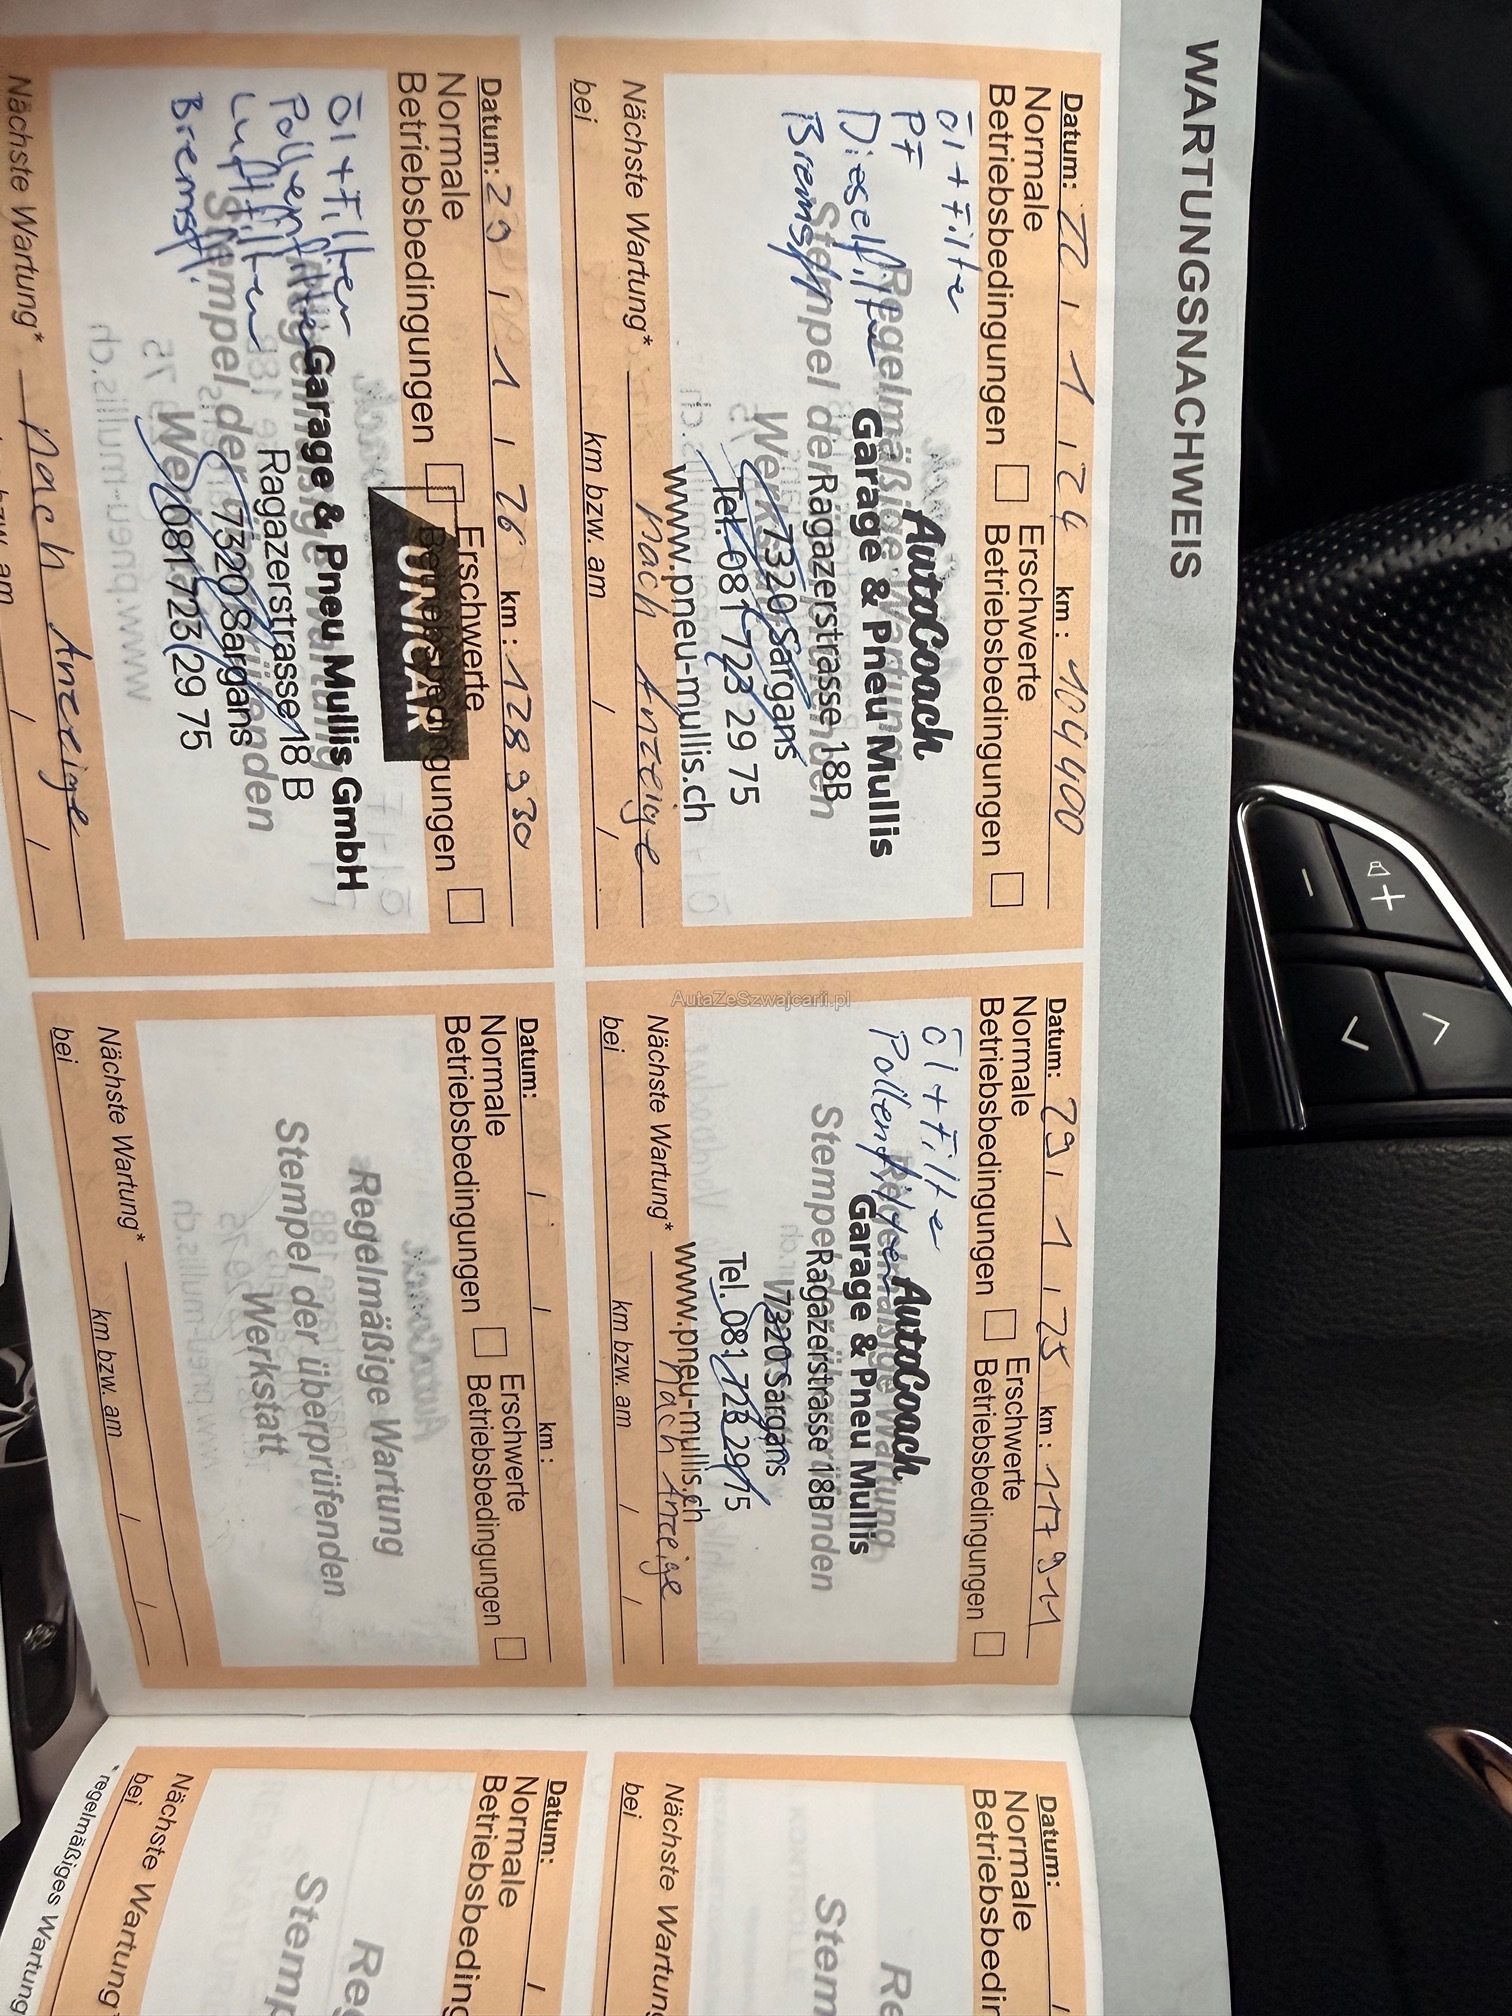 WARTUNGSNACHWEIS
Datum: 22 / 1 / 24 km: 104400
Normale Betriebsbedingungen
Erschwerte Betriebsbedingungen
Öl + Filter
PF
Dieselfilter
Bremsfl.
Regelmäßige Wartung
Stempel der
AutoCoach
Garage & Pneu Mullis
Ragazerstrasse 18B
7320 Sargans
Tel. 081 723 29 75
www.pneu-mullis.ch
Nächste Wartung* nach Anzeige
bei km bzw. am / /
Datum: 29 / 1 / 25 km: 117911
Normale Betriebsbedingungen
Erschwerte Betriebsbedingungen
Öl + Filter
Pollenfilter
AutoCoach
Garage & Pneu Mullis
Ragazerstrasse 18B
7320 Sargans
Tel. 081 723 29 75
www.pneu-mullis.ch
Nächste Wartung* nach Anzeige
bei km bzw. am / /
Datum: 29 / 1 / 26 km: 128930
Normale Betriebsbedingungen
Erschwerte Betriebsbedingungen
UNICAR
Öl + Filter
Pollenfilter
Luftfilter
Bremsfl.
Garage & Pneu Mullis GmbH
Ragazerstrasse 18 B
7320 Sargans
081 723 29 75
Nächste Wartung* nach Anzeige
km bzw. am / /
Datum: / / km:
Normale Betriebsbedingungen
Erschwerte Betriebsbedingungen
Regelmäßige Wartung
Stempel der überprüfenden
Werkstatt
Nächste Wartung*
bei km bzw. am / /
Datum: /
Normale
Betriebsbedin
Re
Stem
Nächste Wartung
bei
Datum: /
Normale
Betriebsbeding
Re
Stemp
Nächste Wartung
bei
* regelmäßiges Wartung
AutaZeSzwajcarii.pl